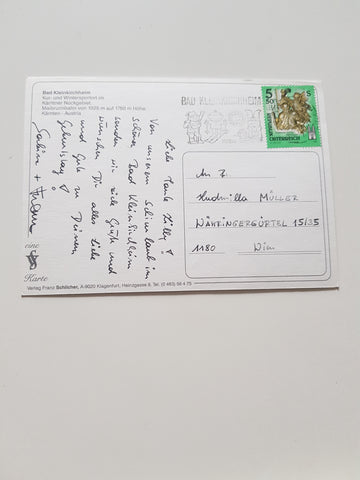 Bad Kleinkirchheim
Kur- und Wintersportort im
Kärntner Nockgebiet.
Maibrunnbahn von 1026 m auf 1760 m Höhe.
Kärnten - Austria
BAD KLEINKIRCHHEIM
5
50
S
ÖSTERREICH
Liebe Tante Lilly!
Von unserem Schiurlaub im
schönen Bad Kleinkirchheim
senden wir viele Grüße und
wünschen Dir alles Liebe
und Gute zu Deinem
Geburtstag!
Sabine +
An Fr.
Ludmilla MÜLLER
WÄHRINGERGÜRTEL 15/35
1180 Wien
eine
Karte
Verlag Franz Schilcher, A-9020 Klagenfurt, Heinzgasse 8, Tel. (0 463) 56 4 75